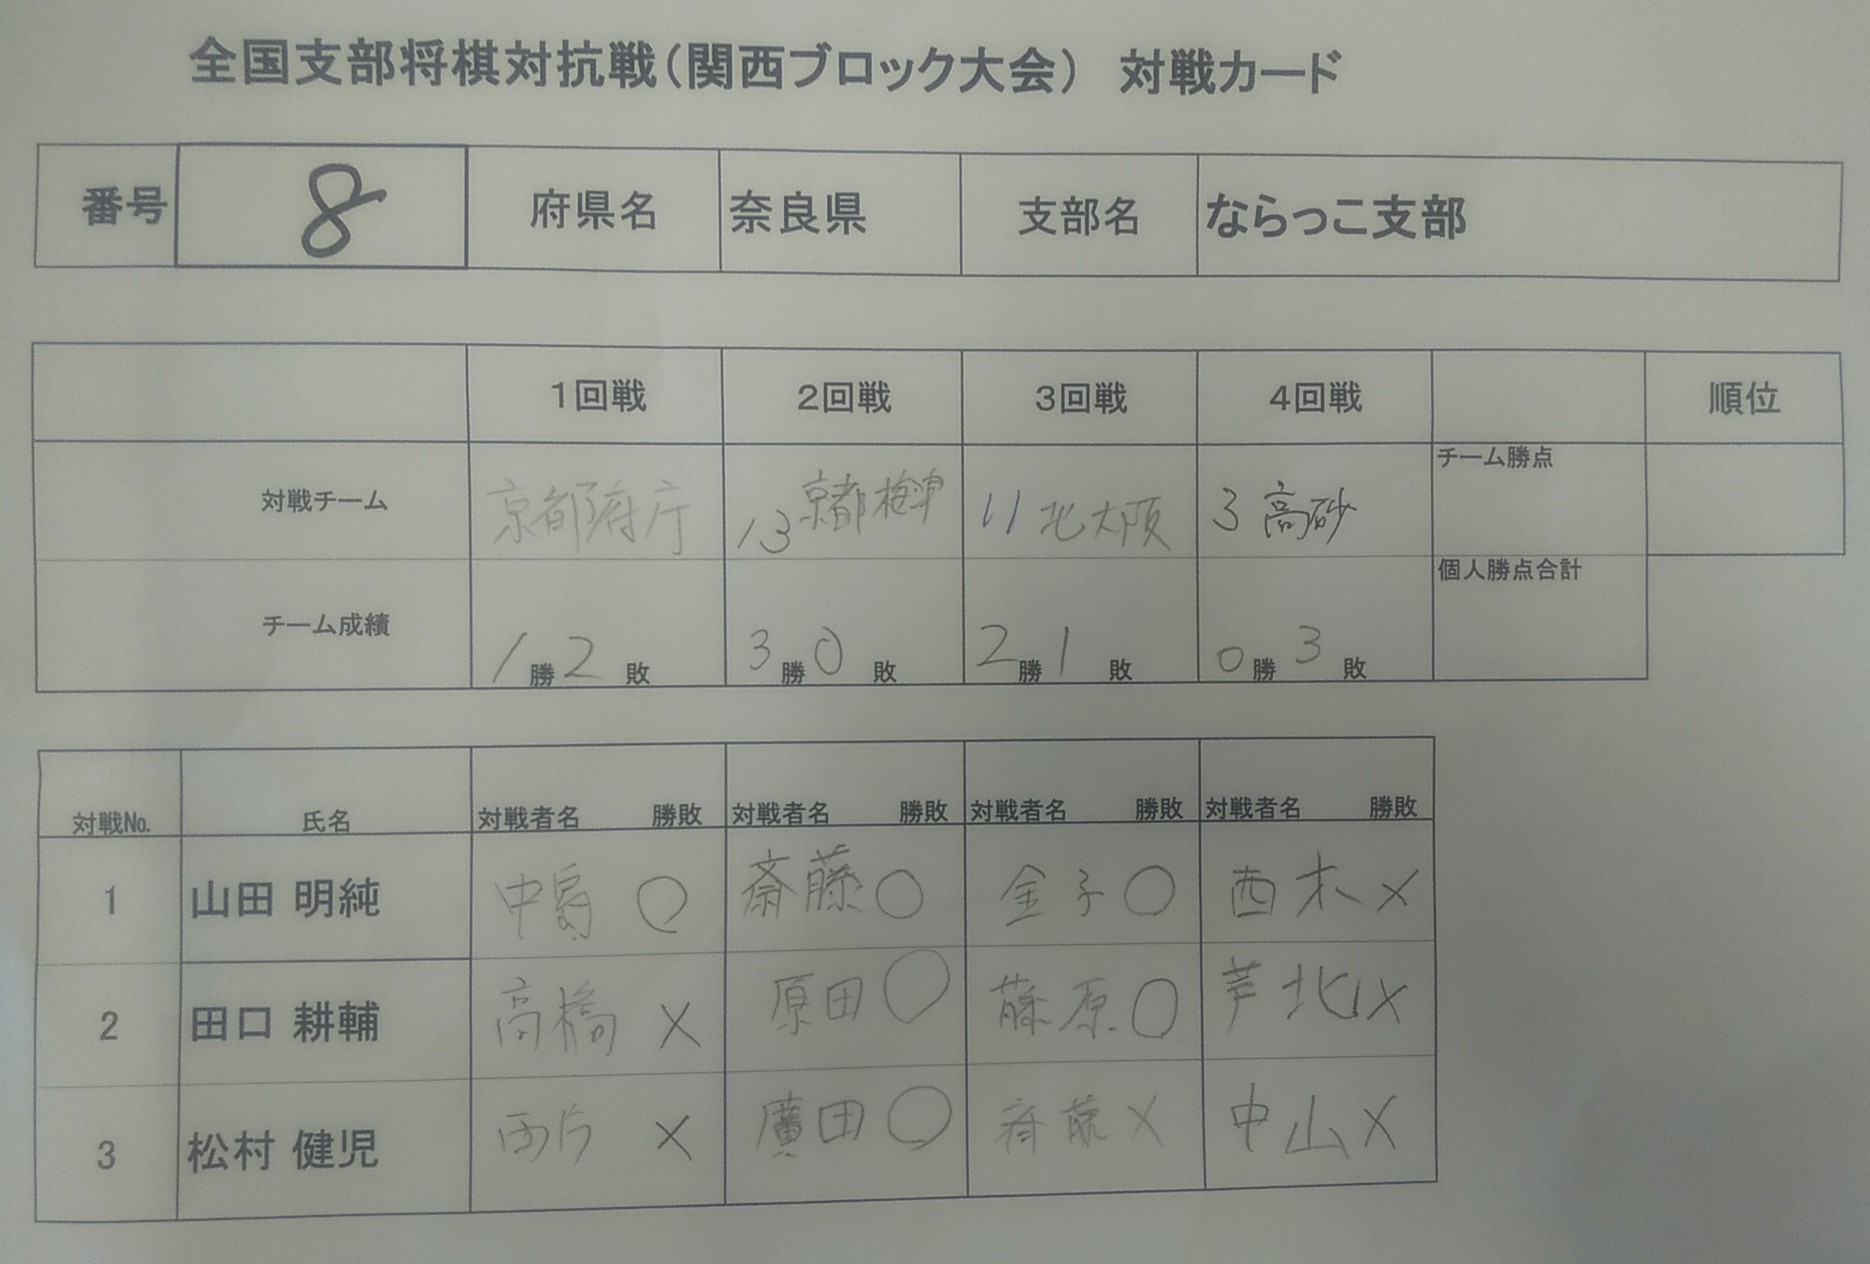 全国支部将棋対抗戦(関西ブロック大会) 対戦カード
番号 8 府県名 奈良県 支部名 ならっこ支部
1回戦 2回戦 3回戦 4回戦 順位
対戦チーム 京都府庁 13 京都 11 北大阪 3 高砂 チーム勝点
チーム成績 1勝2敗 3勝0敗 2勝1敗 0勝3敗 個人勝点合計
対戦No. 氏名 対戦者名 勝敗 対戦者名 勝敗 対戦者名 勝敗 対戦者名 勝敗
1 山田 明純 中島 ○ 斎藤 ○ 金子 ○ 西木 ×
2 田口 耕輔 高橋 × 原田 ○ 藤原 ○ 芦北 ×
3 松村 健児 西片 × 廣田 ○ 斉藤 × 中山 ×